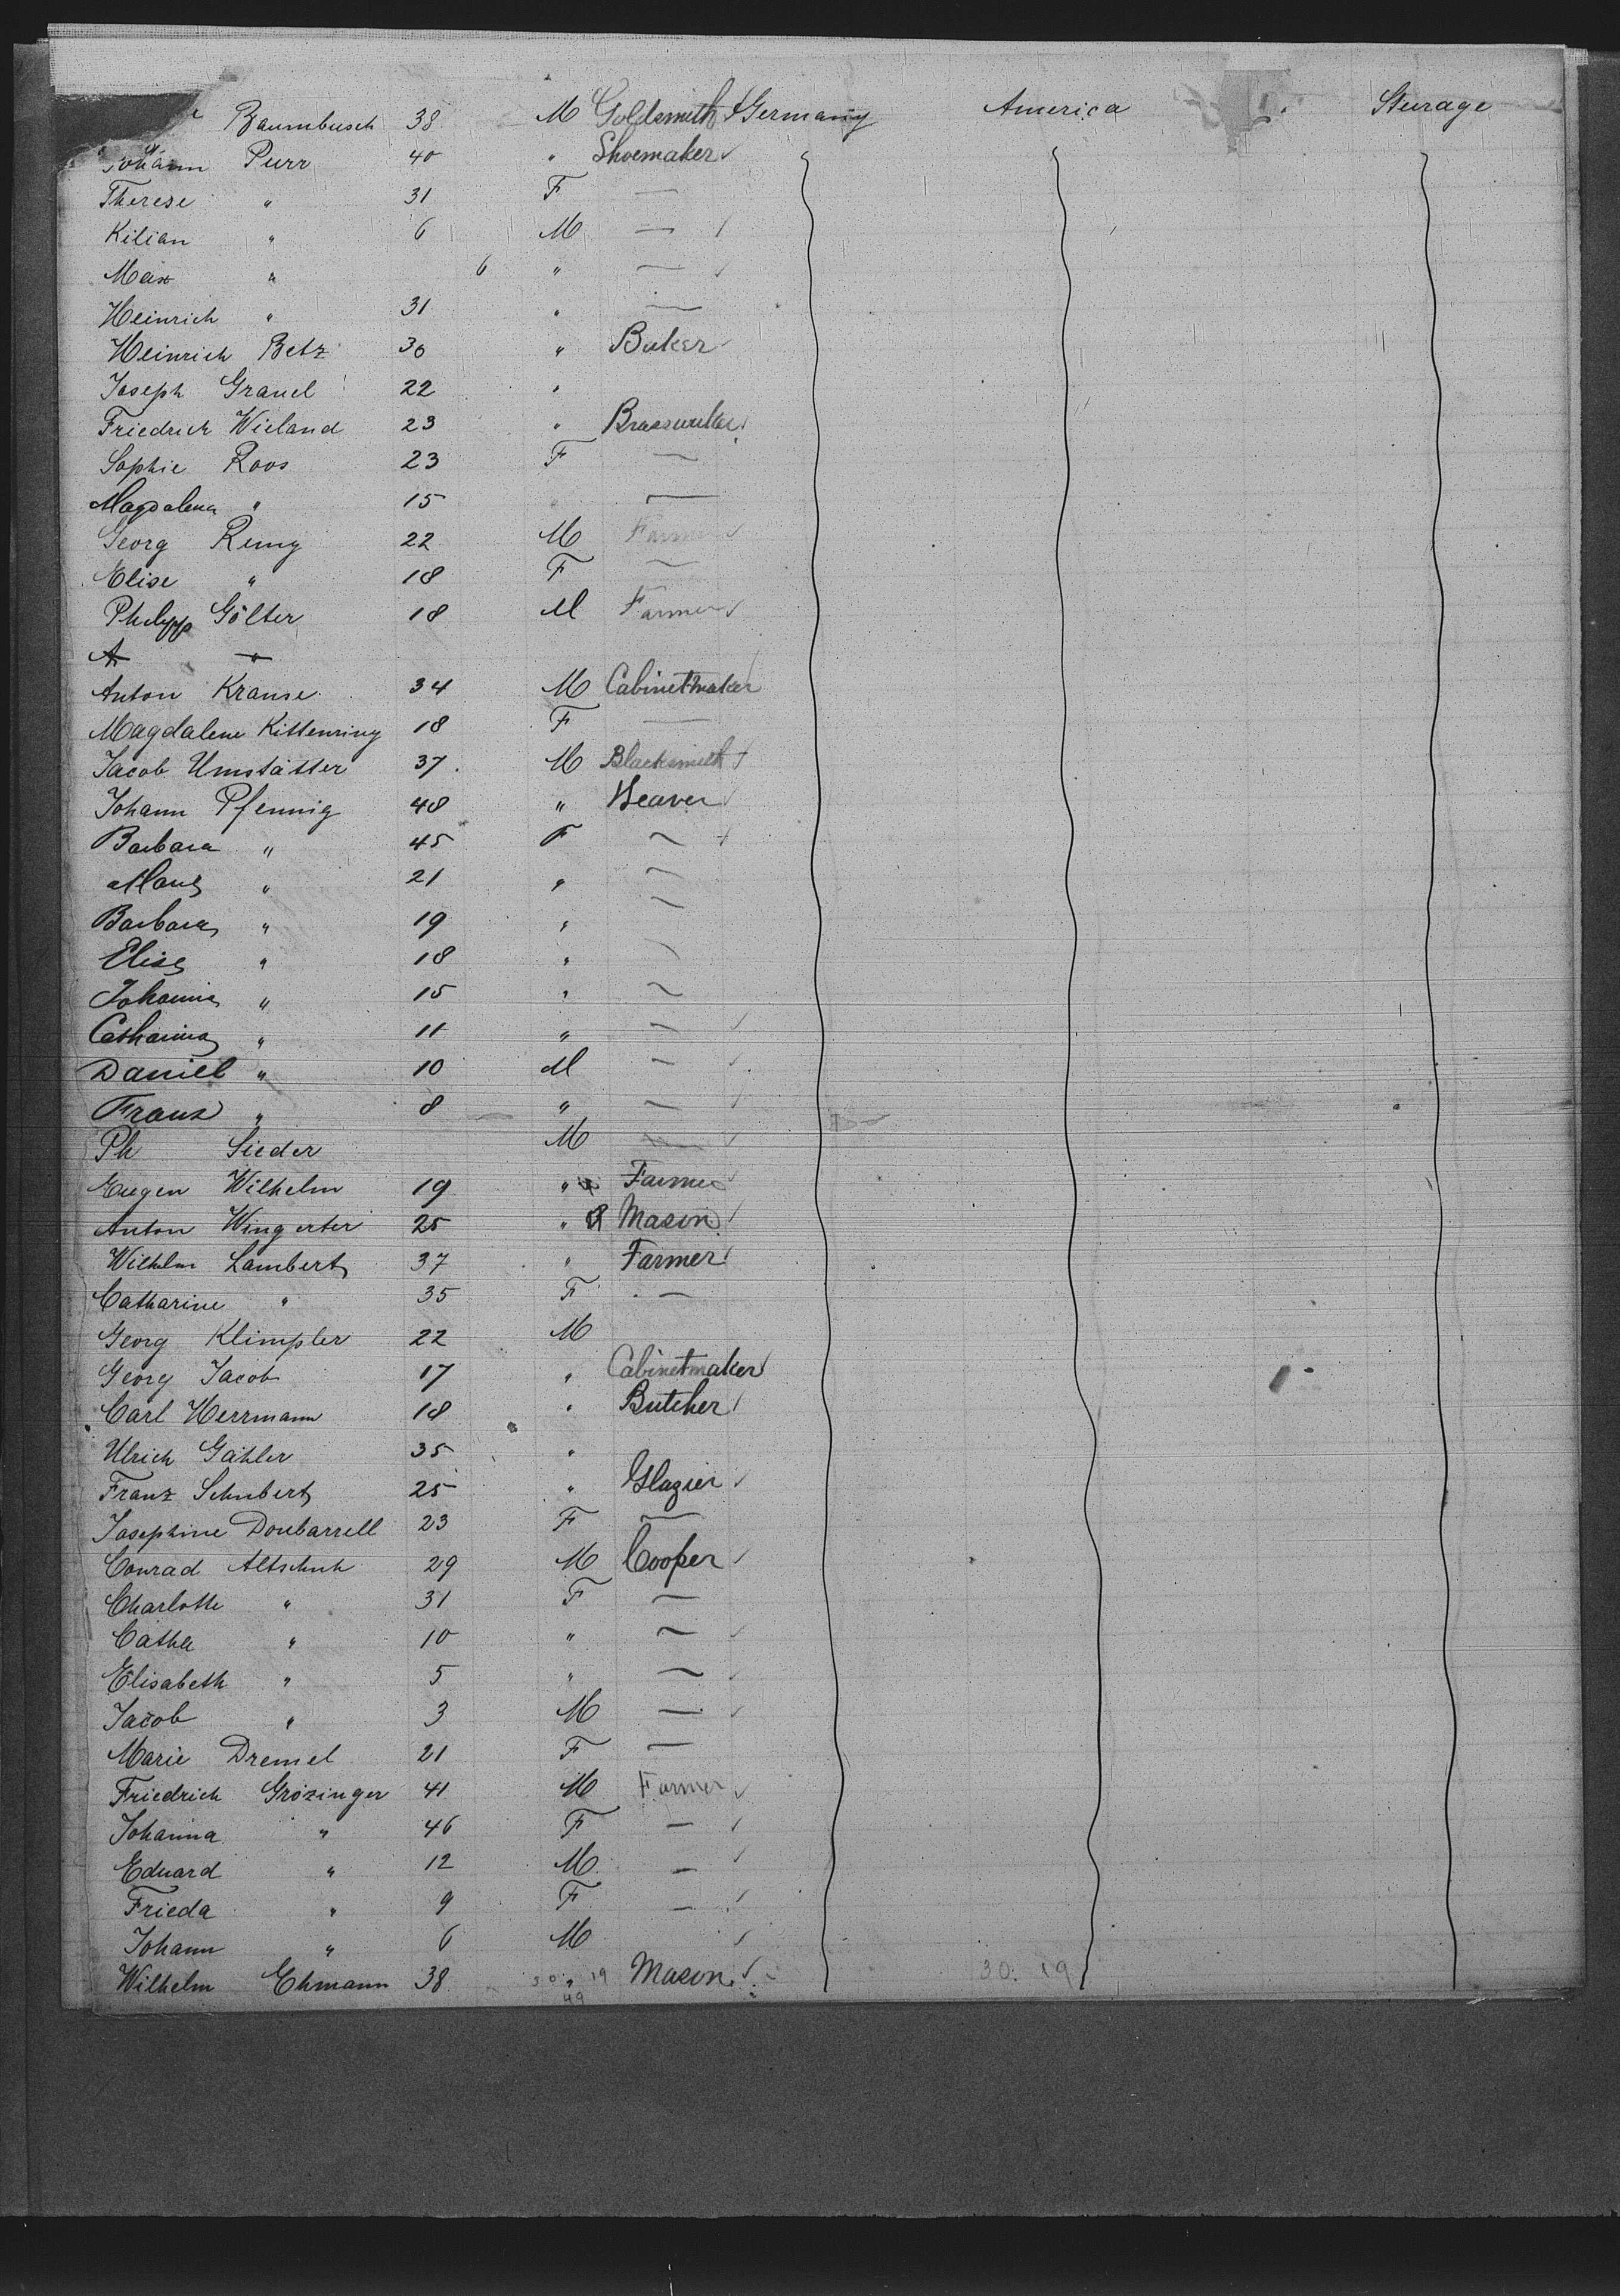 Baumbusch 38 M Goldsmith Germany America Steerage
Johann Purr 40 " Shoemaker
Therese " 31 F —
Kilian " 6 M —
Max " 6 " —
Heinrich " 31 " —
Heinrich Betz 30 " Baker
Joseph Grauel 22 "
Friedrich Wieland 23 "
Sophie Roos 23 F —
Magdalena " 15 " —
Georg Remy 22 M Farmer
Elise " 18 F —
Philipp Gölter 18 M Farmer
A "
Anton Krause 34 M Cabinetmaker
Magdalene Kittenring 18 F —
Jacob Umstätter 37 M Blacksmith
Johann Pfennig 48 " Weaver
Barbara " 45 F —
" 21 " —
Barbara " 19 " —
Elise " 18 " —
Johanna " 15 " —
Catharina " 11 " —
Daniel " 10 M —
Franz " 8 " —
Ph Sieder M —
Eugen Wilhelm 19 " Farmer
Anton Wingerter 25 " Mason
Wilhelm Lambert 37 " Farmer
Catharine " 35 F —
Georg Klimpler 22 M
Georg Jacob 17 " Cabinetmaker
Carl Herrmann 18 " Butcher
Ulrich Gähler 35 "
Franz Schubert 25 " Glazier
Josephine Doubarrell 23 F —
Conrad Altschuh 29 M Cooper
Charlotte " 31 F —
Catha " 10 " —
Elisabeth " 5 " —
Jacob " 3 M —
Marie Dremel 21 F —
Friedrich Grözinger 41 M Farmer
Johanna " 46 F —
Eduard " 12 M —
Frieda " 9 F —
Johann " 6 M
Wilhelm Ehmann 38 30 " 19 Mason 30. 19
49